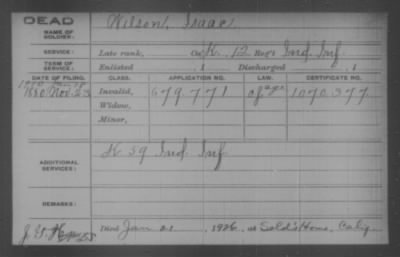 DEAD
NAME OF SOLDIER:
Wilson, Isaac
SERVICE:
Late rank, Co. K, 12 Reg't Ind. Inf.
TERM OF SERVICE:
Enlisted , 1 Discharged , 1
DATE OF FILING. CLASS. APPLICATION NO. LAW. CERTIFICATE NO.
1880 Nov. 23 Invalid, 679.771 1070.377
Widow,
Minor,
ADDITIONAL SERVICES:
K 59 Ind. Inf
REMARKS:
Died Jan 1926, at Sold's Home, Calif.